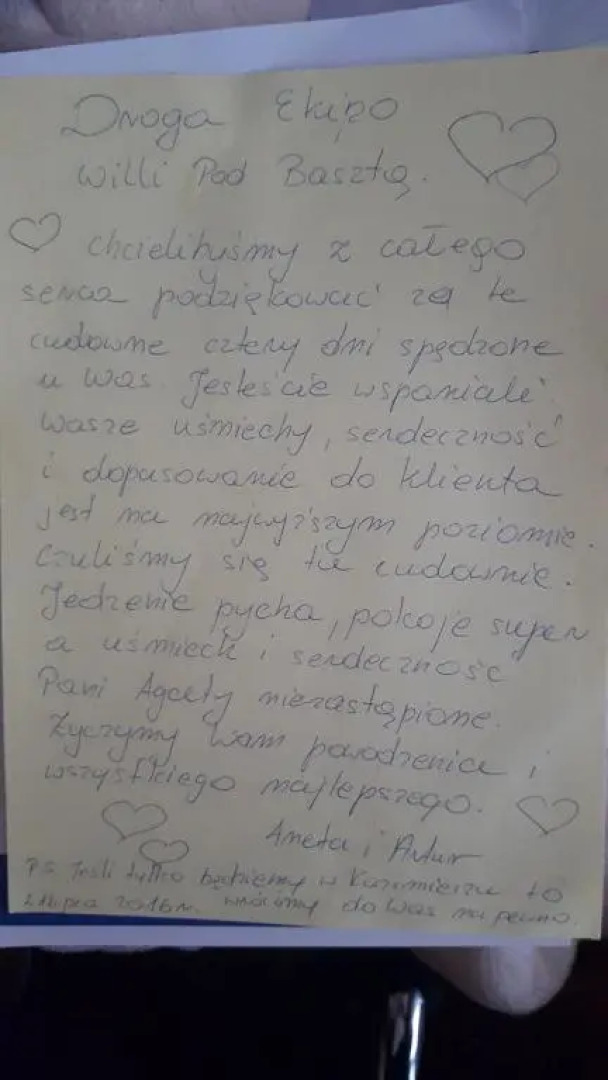 Droga Ekipo
Willi Pod Basztą.
Chcielibyśmy z całego
serca podziękować za te
cudowne cztery dni spędzone
u Was. Jesteście wspaniali.
Wasze uśmiechy, serdeczność
i dopasowanie do klienta
jest na najwyższym poziomie.
Czuliśmy się tu cudownie.
Jedzenie pycha, pokoje super
a uśmiech i serdeczność
Pani Agaty niezastąpione.
Życzymy Wam powodzenia i
wszystkiego najlepszego.
Aneta i Artur
PS Jeśli tylko będziemy w Kazimierzu to
2 lipca 2016r. wrócimy do Was na pewno.